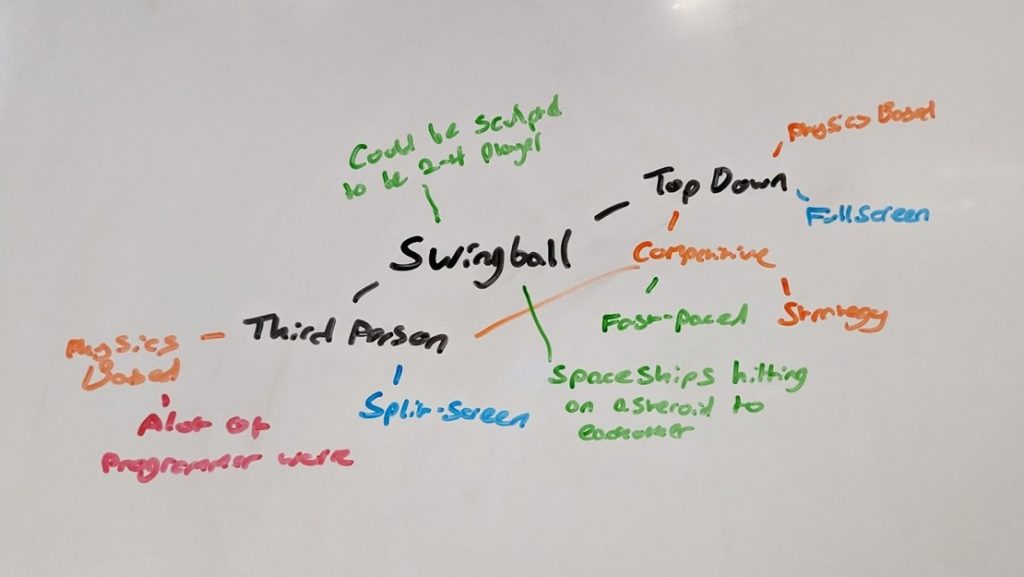 Could be sculpted
to be 2-4 player
Physics Based
Top Down
FullScreen
Swingball
Competitive
Fast-paced
Strategy
Third Person
Physics
Based
Split-Screen
Spaceships hitting
an asteroid to
eachother
Alot of
Programmer work